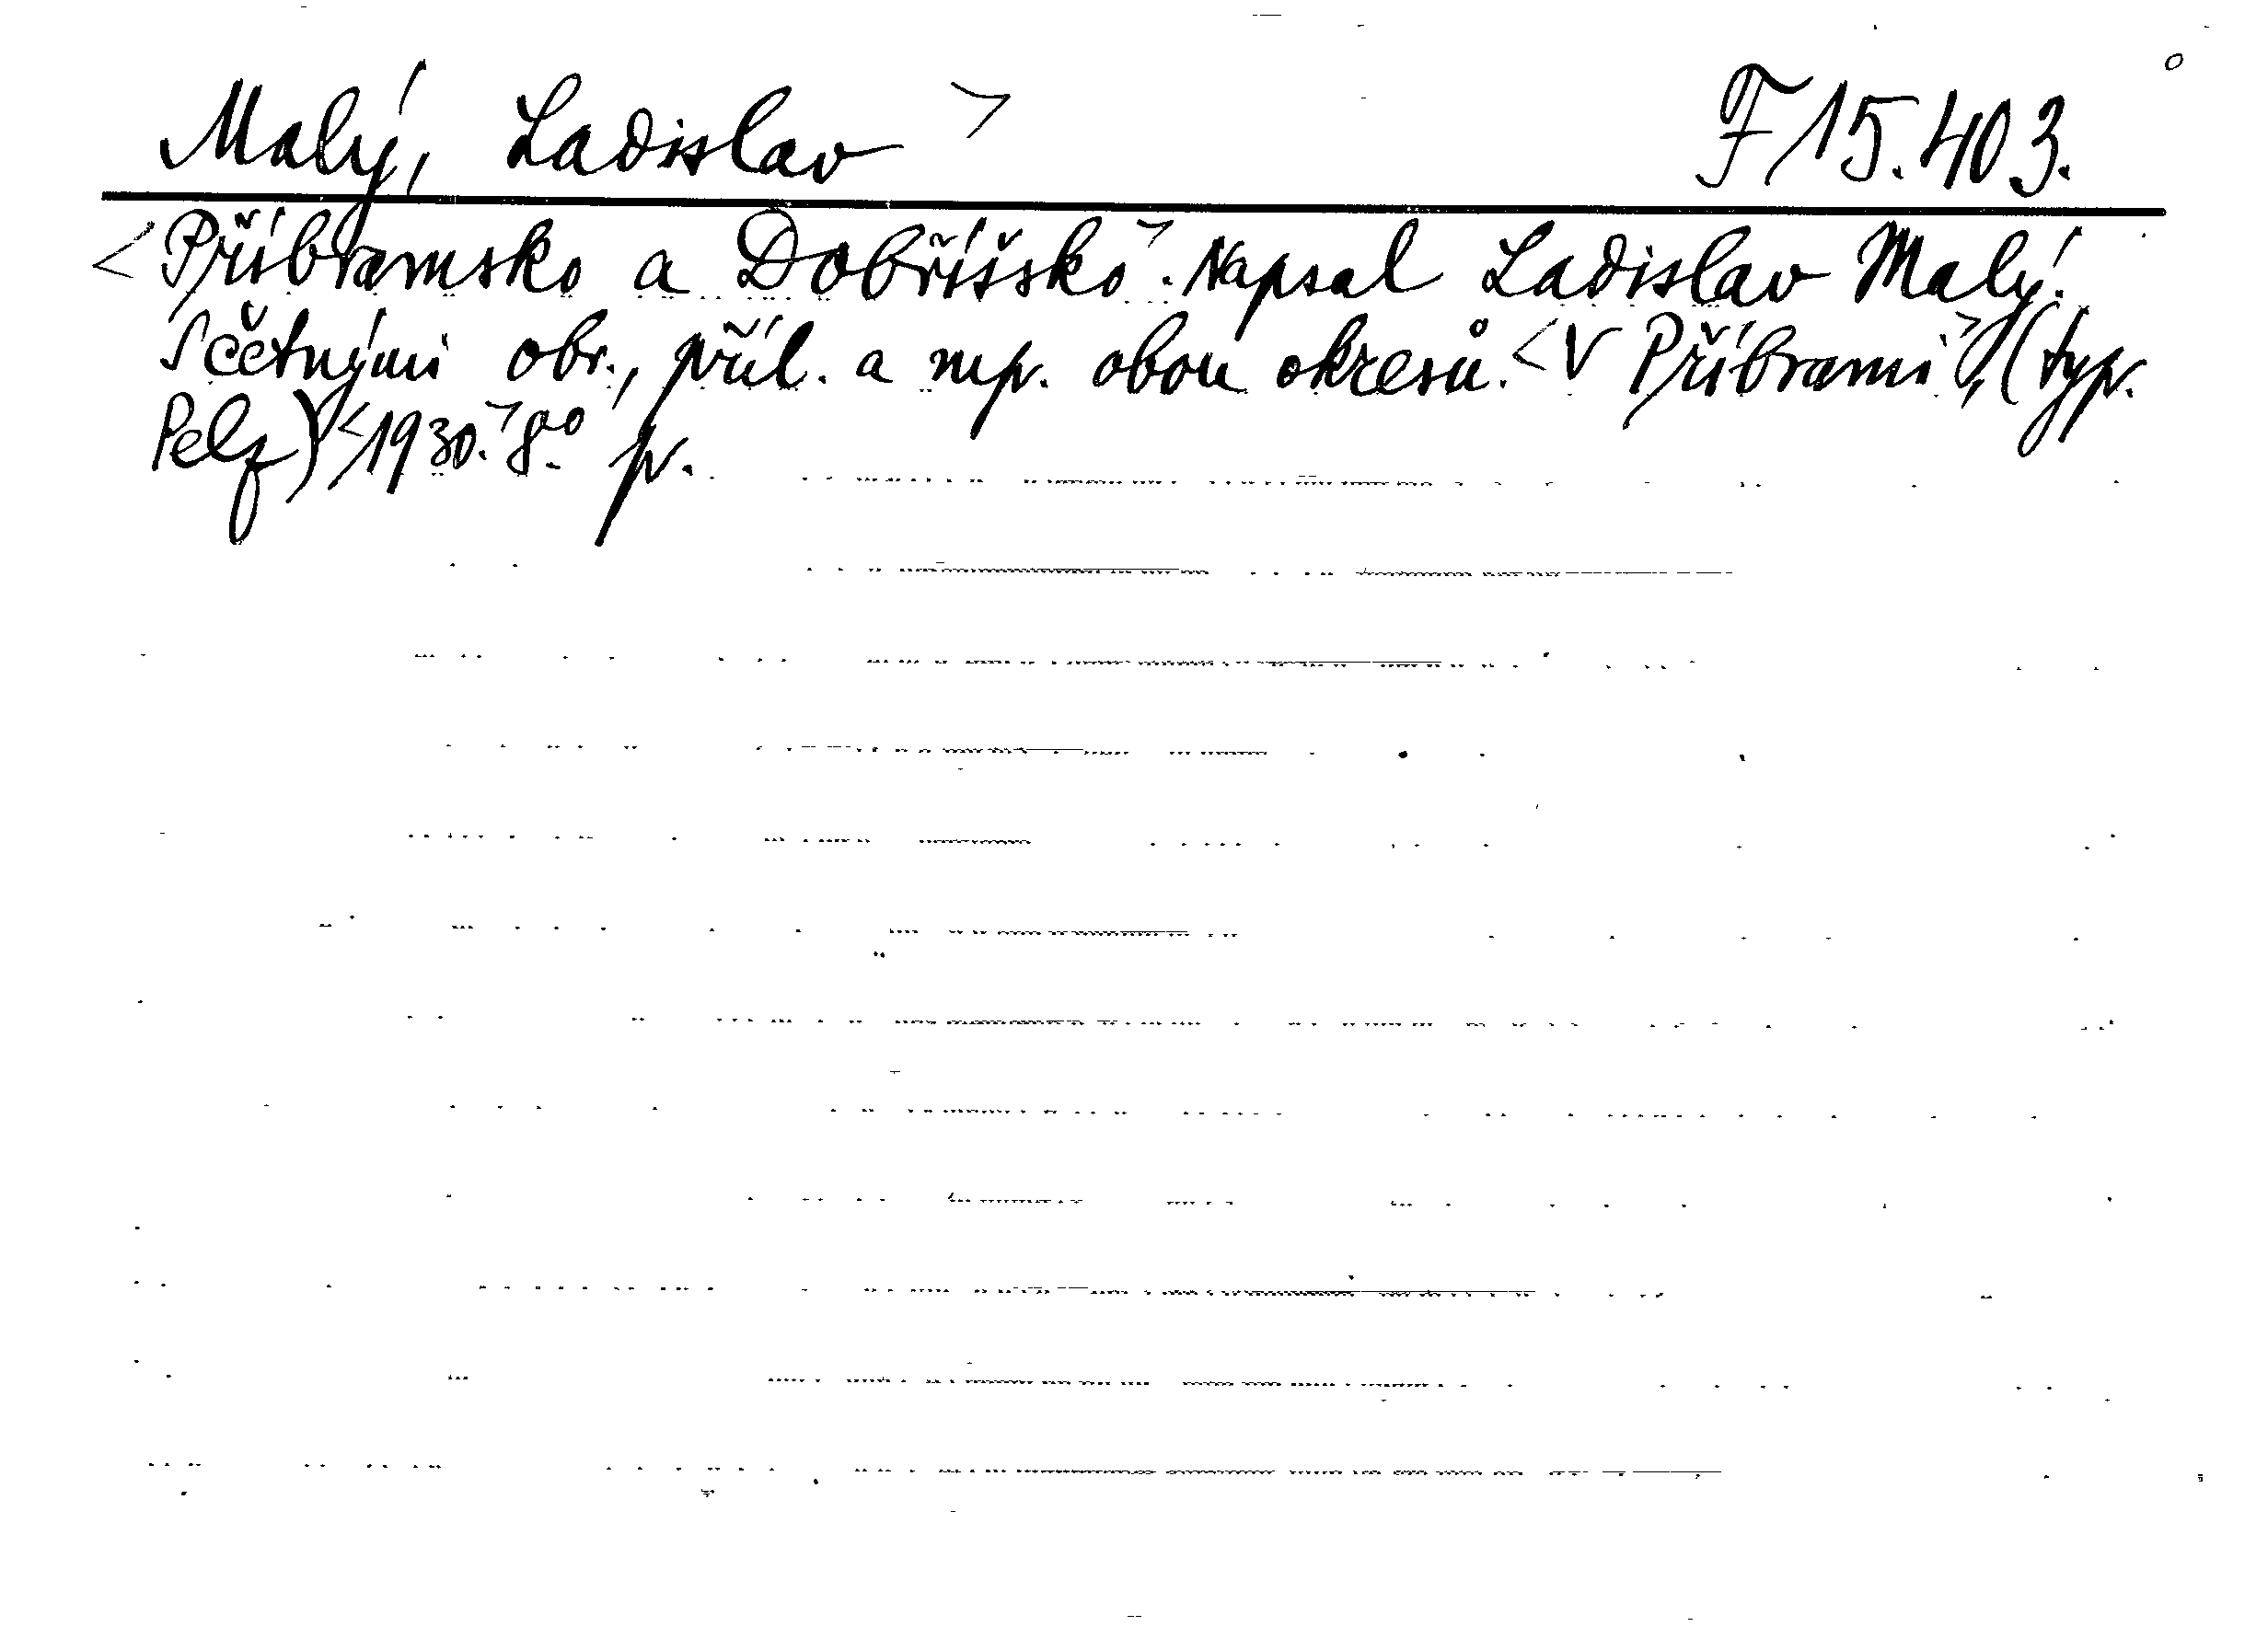 Malý, Ladislav > F 15.403.
<Příbramsko a Dobříšsko>. Napsal Ladislav Malý.
S četnými obr., příl. a mp. obou okresů. <V Příbrami>, (typ.
Pelz) <1930.> 8.° p.